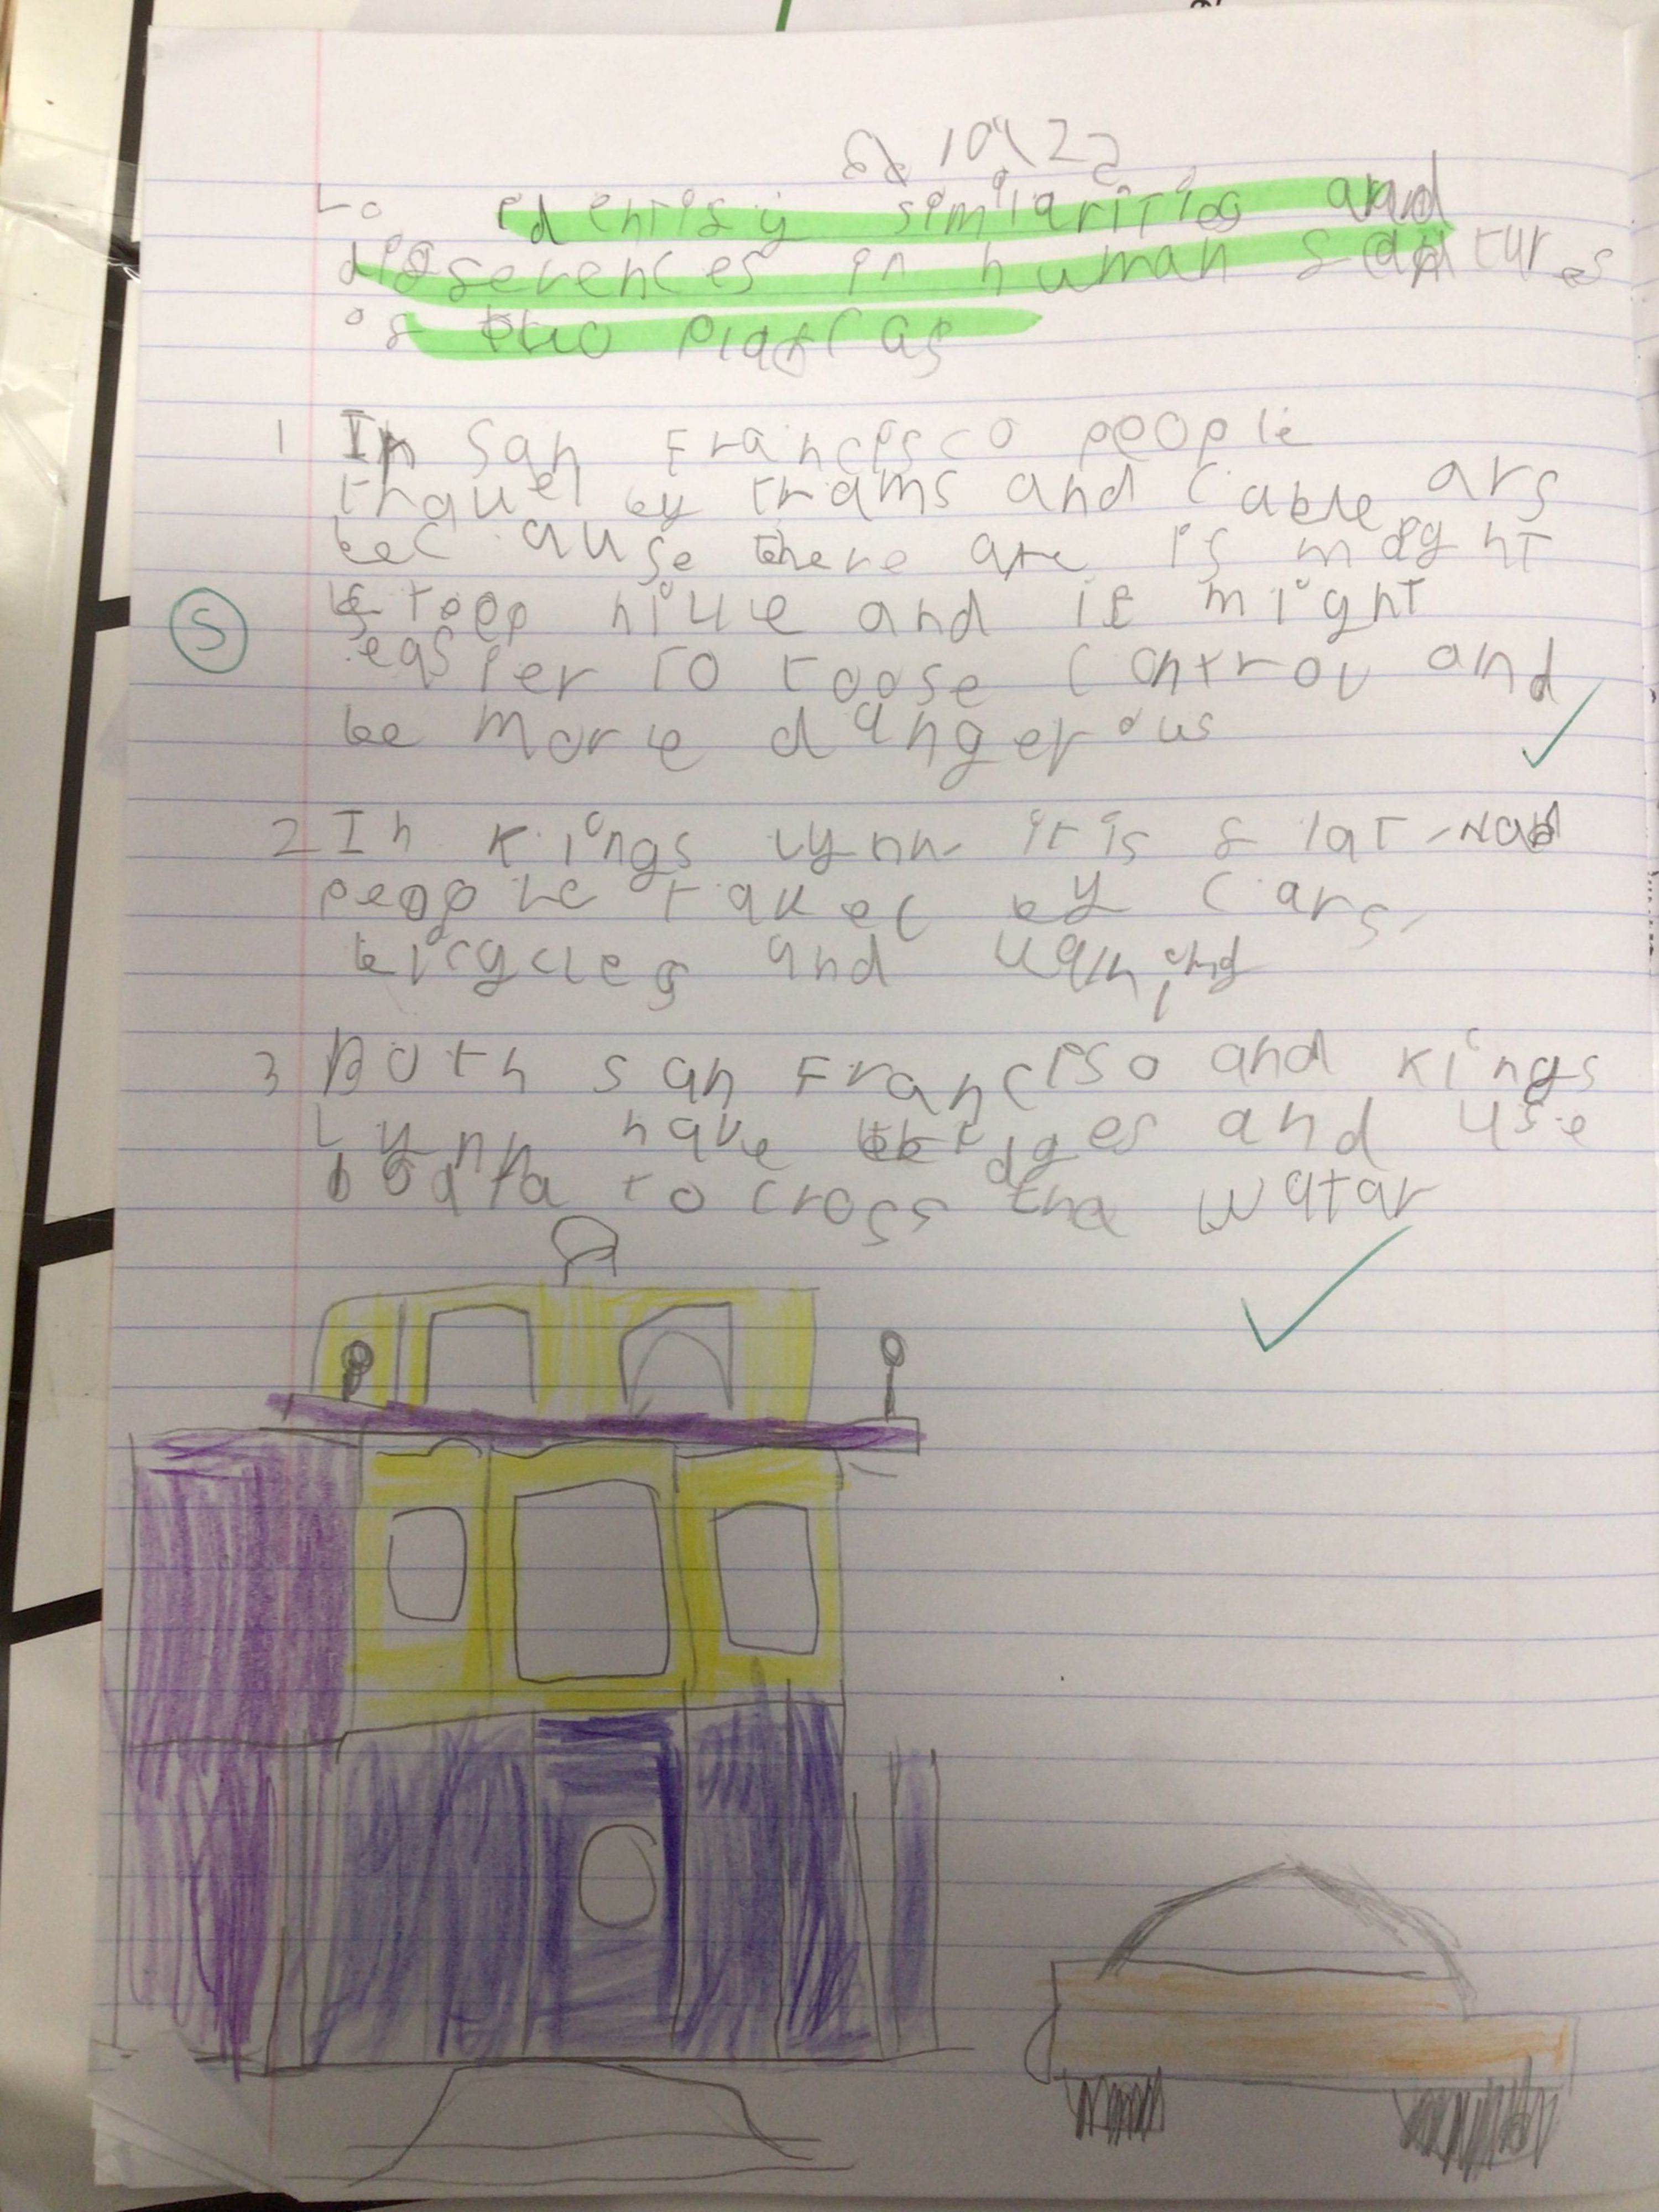 10\22
Lo identify similarities and
disferences in human featur es
of two places
1 In San Francisco people
travel by trams and cable ars
bec ause there are is might
steep hille and it might
easier to loose control and
be more dangerous
2 In Kings lynn it is flat
people travel by cars,
bicycles and
3 Both san Franciso and Kings
Lynn have bridges and use
boats to cross the watar
S